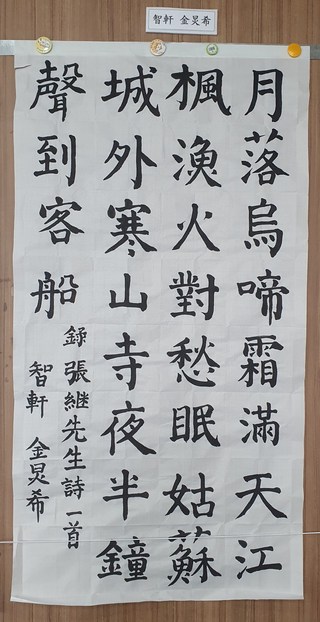 智軒 金炅希
月落烏啼霜滿天江
楓漁火對愁眠姑蘇
城外寒山寺夜半鐘
聲到客船
錄張継先生詩一首
智軒 金炅希